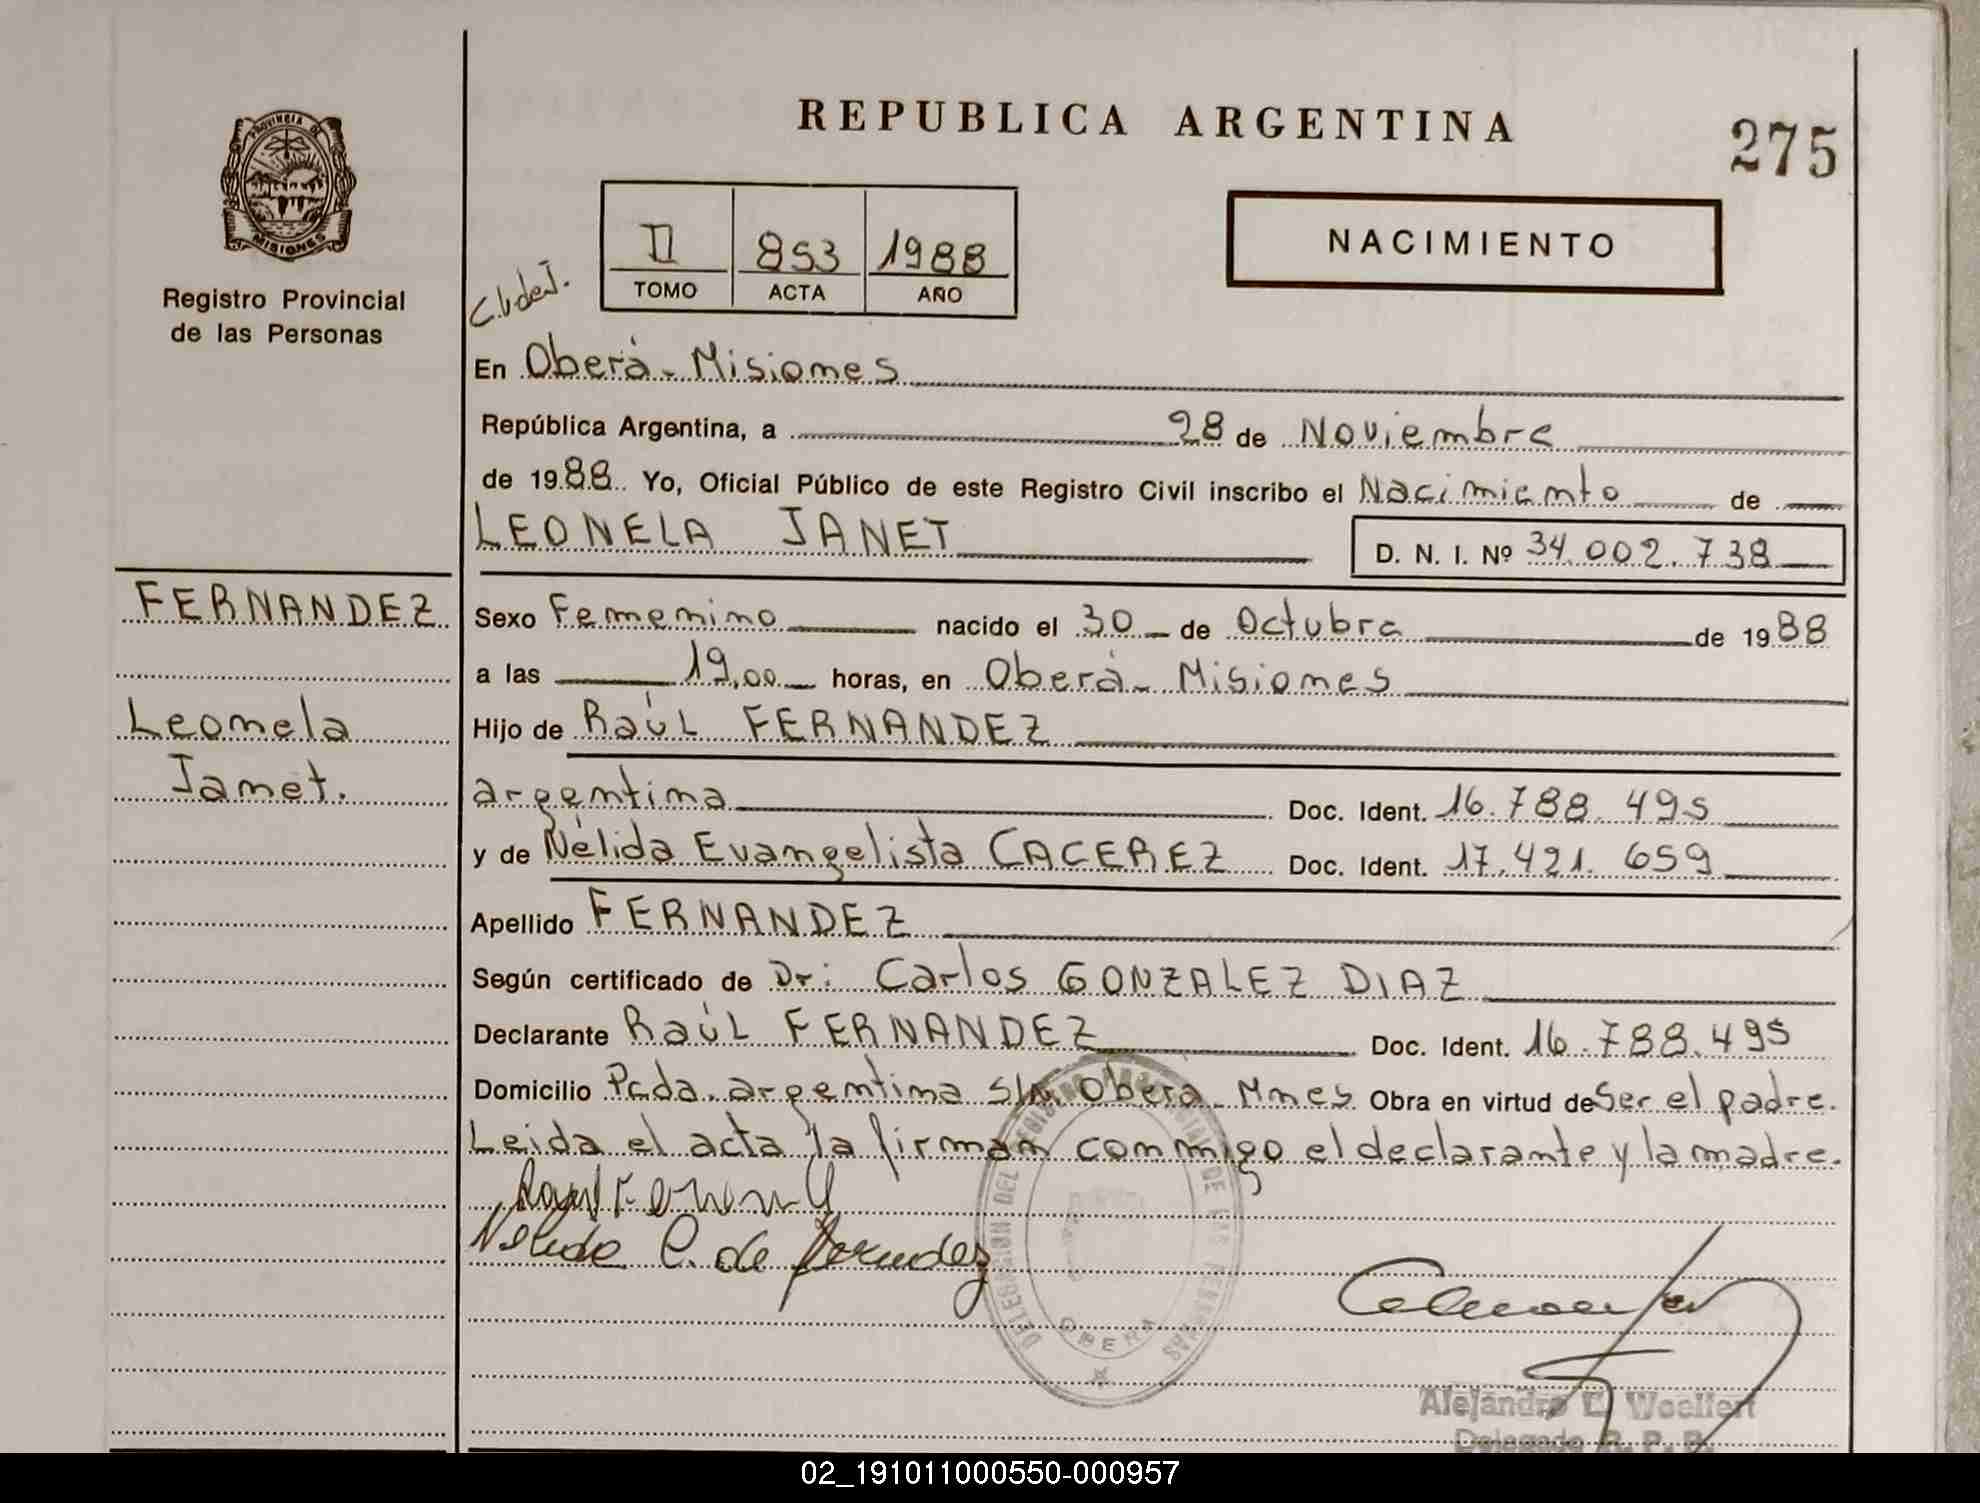 REPUBLICA ARGENTINA
275
PROVINCIA DE
MISIONES
Registro Provincial
de las Personas
II 853 1988
TOMO ACTA AÑO
NACIMIENTO
En Oberá - Misiones
República Argentina, a 28 de Noviembre
de 1988. Yo, Oficial Público de este Registro Civil inscribo el Nacimiento de
LEONELA JANET
D. N. I. Nº 34.002.738
FERNANDEZ
Leonela
Janet.
Sexo Femenino nacido el 30 de Octubre de 1988
a las 19,00 horas, en Oberá - Misiones
Hijo de Raúl FERNANDEZ
argentina Doc. Ident. 16.788.495
y de Nélida Evangelista CACEREZ Doc. Ident. 17.421.659
Apellido FERNANDEZ
Según certificado de Dr: Carlos GONZALEZ DIAZ
Declarante Raúl FERNANDEZ Doc. Ident. 16.788.495
Domicilio Pcda. argentina S/N. Obera - Mnes. Obra en virtud de Ser el padre.
Leida el acta la firman conmigo el declarante y la madre.
Nelida C. de Fernudez
DELEGACION DEL REGISTRO PROVINCIAL DE LAS PERSONAS
OBERA
Alejandro E. Woelfert
Delegado R. P. P.
02_191011000550-000957